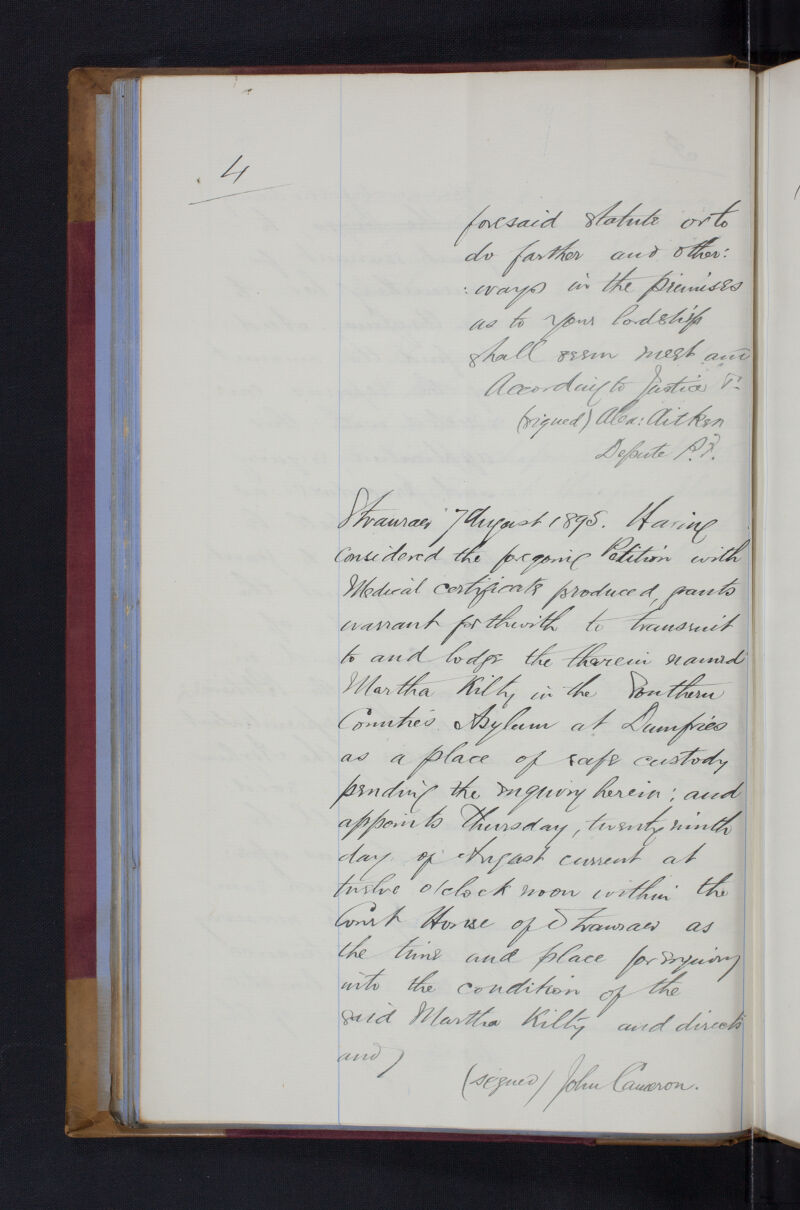 4
foresaid Statute or to
do farther and other:
:ways in the premises
as to your lordship
shall seem meet and
According to Justice
(signed) Alex: Aitken
Depute P.F.
Stranraer 7 August 1895. Having
considered the foregoing Petition with
Medical certificate produced, grants
warrant forthwith to transmit
to and lodge the therein named
Martha Kilty in the Southern
Counties Asylum at Dumfries
as a place of safe custody
pending the inquiry herein; and
appoints Thursday, twenty ninth
day of August current at
twelve o'clock noon within the
Court House of Stranraer as
the time and place for inquiry
into the condition of the
said Martha Kilty and directs
and
(signed) John Cameron.